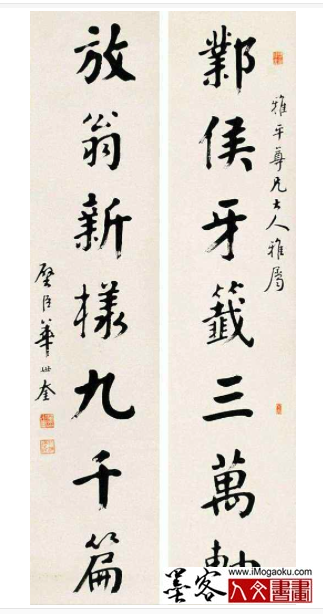 雅平尊兄大人雅屬
鄴侯牙籤三萬軸
放翁新樣九千篇
璧臣華世奎
www.iMogaoku.com
墨客
人文書畫